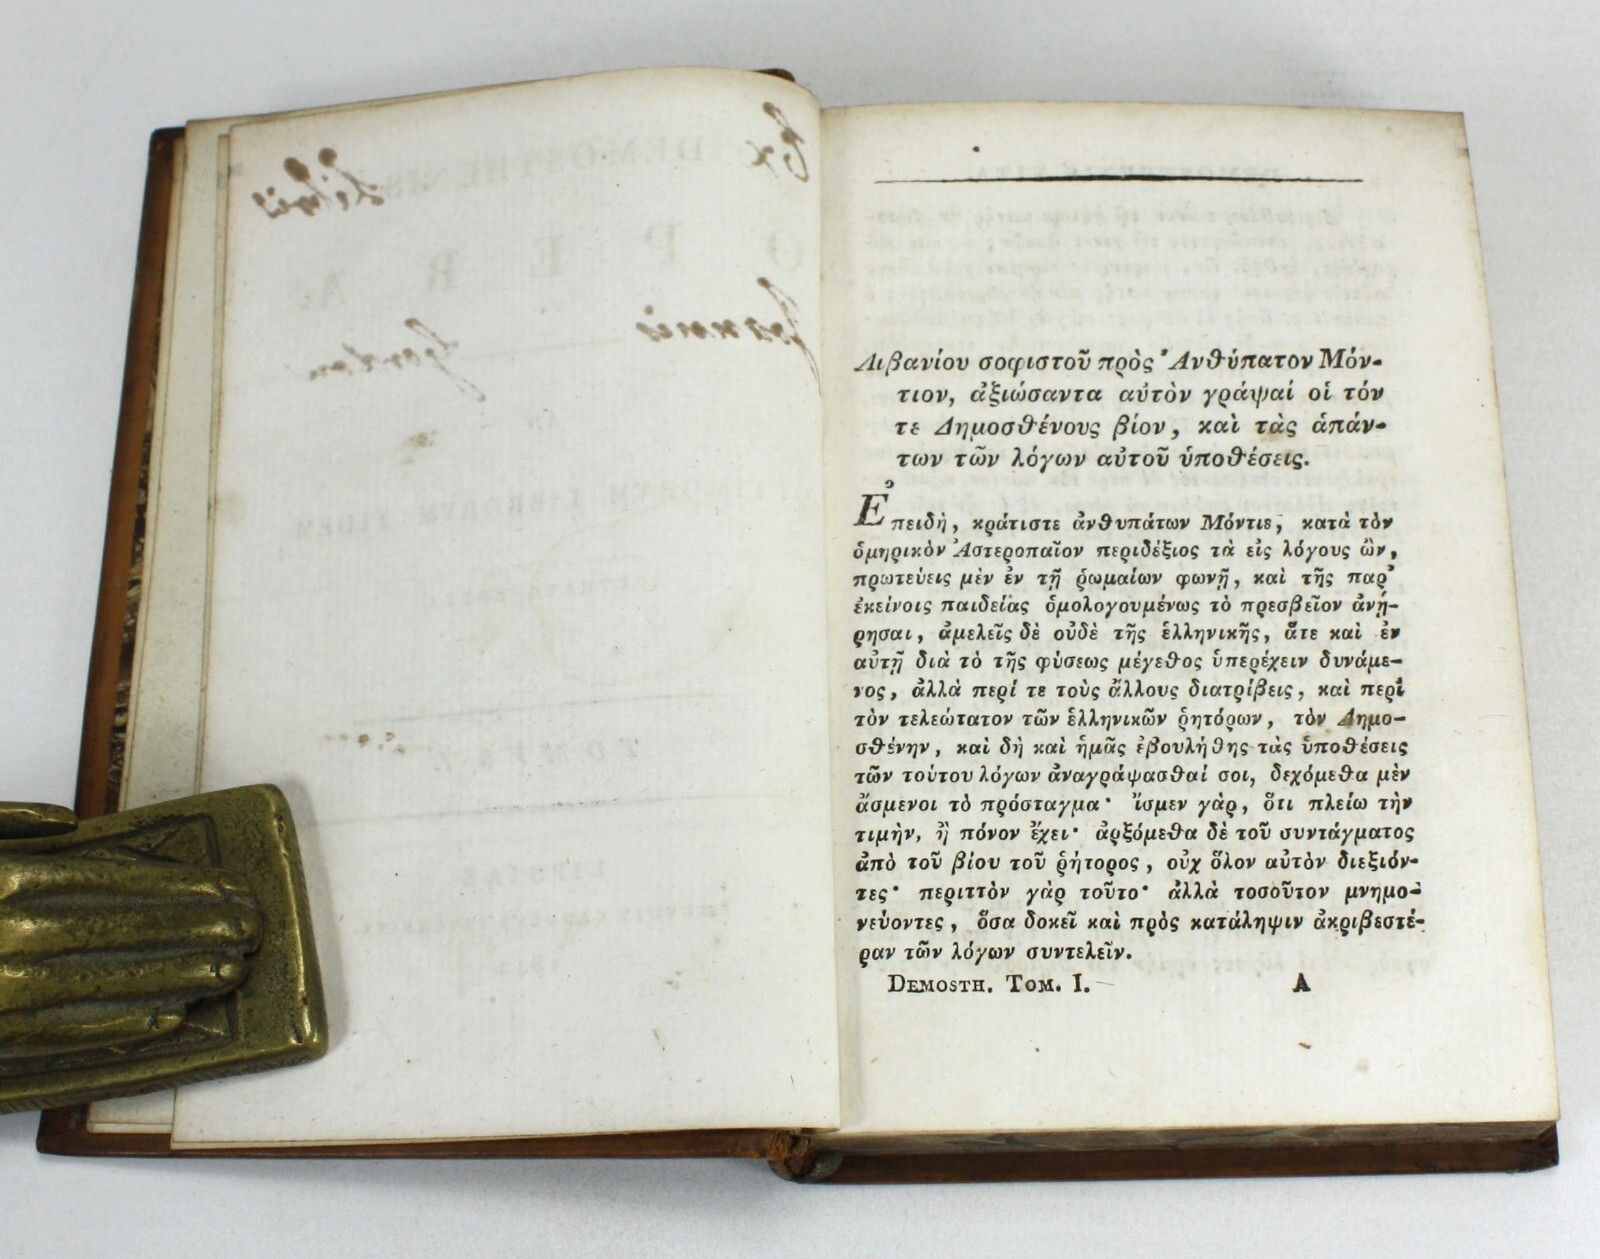 Ex
Libris
Joannis
Gordon
DEMOSTHENIS
OPERA
LIBRORVM FIDEM
TOMVS I.
LIPSIAE
Λιβανίου σοφιστοῦ πρὸς Ἀνθύπατον Μόν-
τιον, ἀξιώσαντα αὐτὸν γράψαί οἱ τόν
τε Δημοσθένους βίον, καὶ τὰς ἁπάν-
των τῶν λόγων αὐτοῦ ὑποθέσεις.
Ἐπειδὴ, κράτιστε ἀνθυπάτων Μόντιε, κατὰ τὸν
ὁμηρικὸν Ἀστεροπαῖον περιδέξιος τὰ εἰς λόγους ὢν,
πρωτεύεις μὲν ἐν τῇ ῥωμαίων φωνῇ, καὶ τῆς παρ᾽
ἐκείνοις παιδείας ὁμολογουμένως τὸ πρεσβεῖον ἀνῄ-
ρησαι, ἀμελεῖς δὲ οὐδὲ τῆς ἑλληνικῆς, ἅτε καὶ ἐν
αὐτῇ διὰ τὸ τῆς φύσεως μέγεθος ὑπερέχειν δυνάμε-
νος, ἀλλὰ περί τε τοὺς ἄλλους διατρίβεις, καὶ περὶ
τὸν τελεώτατον τῶν ἑλληνικῶν ῥητόρων, τὸν Δημο-
σθένην, καὶ δὴ καὶ ἡμᾶς ἐβουλήθης τὰς ὑποθέσεις
τῶν τούτου λόγων ἀναγράψασθαί σοι, δεχόμεθα μὲν
ἄσμενοι τὸ πρόσταγμα· ἴσμεν γὰρ, ὅτι πλείω τὴν
τιμὴν, ἢ πόνον ἔχει· ἀρξόμεθα δὲ τοῦ συντάγματος
ἀπὸ τοῦ βίου τοῦ ῥήτορος, οὐχ ὅλον αὐτὸν διεξιόν-
τες· περιττὸν γὰρ τοῦτο· ἀλλὰ τοσοῦτον μνημο-
νεύοντες, ὅσα δοκεῖ καὶ πρὸς κατάληψιν ἀκριβεστέ-
ραν τῶν λόγων συντελεῖν.
DEMOSTH. TOM. I. A